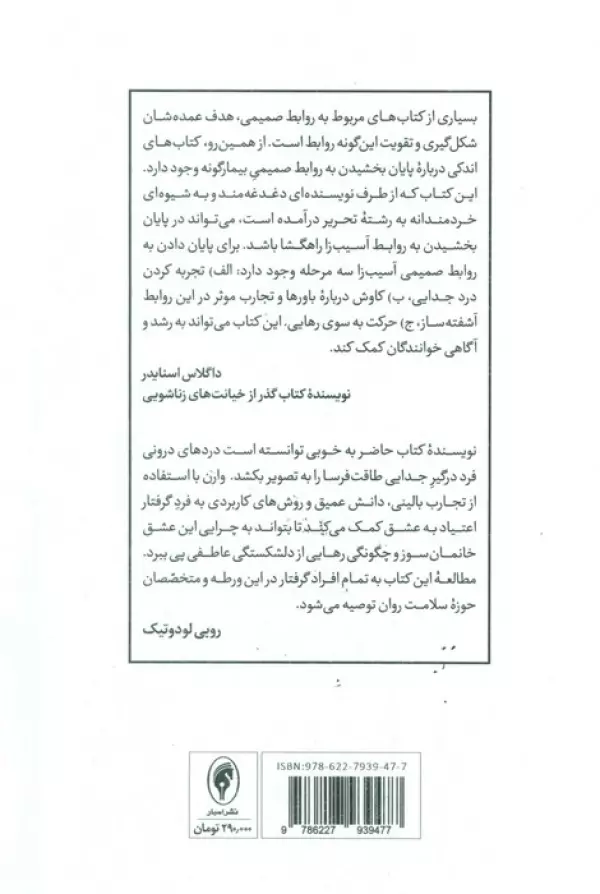 بسیاری از کتاب‌های مربوط به روابط صمیمی، هدف عمده‌شان
شکل‌گیری و تقویت این‌گونه روابط است. از همین‌رو، کتاب‌های
اندکی دربارهٔ پایان بخشیدن به روابط صمیمیِ بیمارگونه وجود دارد.
این کتاب که از طرف نویسنده‌ای دغدغه‌مند و به شیوه‌ای
خردمندانه به رشتهٔ تحریر درآمده است، می‌تواند در پایان
بخشیدن به روابط آسیب‌زا راهگشا باشد. برای پایان دادن به
روابط صمیمی آسیب‌زا سه مرحله وجود دارد: الف) تجربه کردن
درد جدایی، ب) کاوش دربارهٔ باورها و تجارب موثر در این روابط
آشفته‌ساز، ج) حرکت به سوی رهایی. این کتاب می‌تواند به رشد و
آگاهی خوانندگان کمک کند.
داگلاس اسنایدر
نویسندهٔ کتاب گذر از خیانت‌های زناشویی
نویسندهٔ کتاب حاضر به خوبی توانسته است دردهای درونی
فرد درگیرِ جدایی طاقت‌فرسا را به تصویر بکشد. وارن با استفاده
از تجارب بالینی، دانش عمیق و روش‌های کاربردی به فردِ گرفتار
اعتیاد به عشق کمک می‌کند تا بتواند به چرایی این عشق
خانمان‌سوز و چگونگی رهایی از دلشکستگی عاطفی پی ببرد.
مطالعهٔ این کتاب به تمامِ افراد گرفتار در این ورطه و متخصّصان
حوزهٔ سلامت روان توصیه می‌شود.
روبی لودوتیک
ISBN:978-622-7939-47-7
9 786227 939477
نشر اسبار
۲۹۰,۰۰۰ تومان